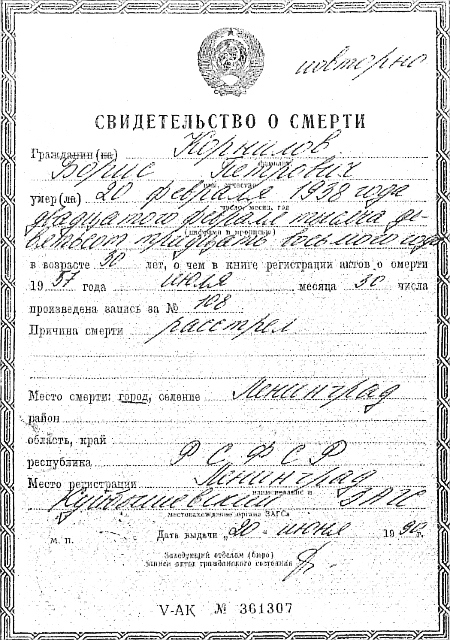 повторно
СВИДЕТЕЛЬСТВО О СМЕРТИ
Гражданин (ка) Корнилов
фамилия
Борис Петрович
имя, отчество
умер (ла) 20 февраля 1938 года
число, месяц, год
двадцатого февраля тысяча де-
(цифрами и прописью)
вятьсот тридцать восьмого года
в возрасте 30 лет, о чем в книге регистрации актов о смерти
19 57 года июля месяца 30 числа
произведена запись за № 108
Причина смерти расстрел
Место смерти: город, селение Ленинград
район
область, край
республика РСФСР
Место регистрации Ленинград
наименование и
Куйбышевский ЗАГС
местонахождение органа ЗАГСа
М. П. Дата выдачи „20“ июня 1990 г.
Заведующий отделом (бюро)
записи актов гражданского состояния
V-АК № 361307